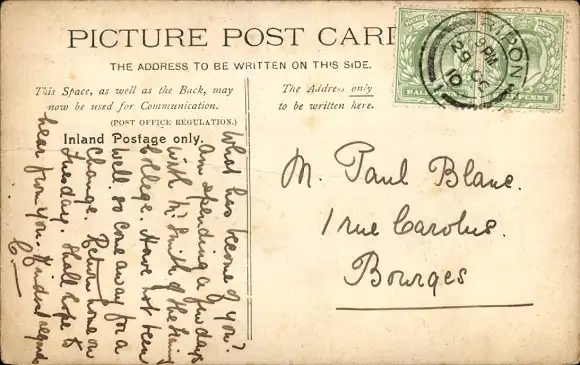 PICTURE POST CARD
THE ADDRESS TO BE WRITTEN ON THIS SIDE.
This Space, as well as the Back, may
now be used for Communication.
(POST OFFICE REGULATION.)
Inland Postage only.
The Address only
to be written here.
What has become of you?
Am spending a few days
with Mr Smith of the Training
College. Have not been
well so come away for a
change. Return home on
Tuesday. Shall hope to
hear from you. Kindest regards
C.
M. Paul Blanc.
1 rue Carolus.
Bourges
MPON
9 PM
29 OC
10
HAL
PENNY